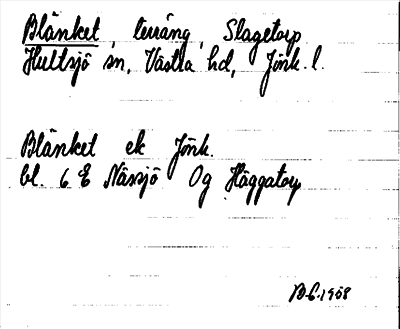 Blänket, terräng, Slagetorp
Hultsjö sn, Västra hd, Jönk. l.
Blänket ek Jönk.
bl. 6 E Nässjö Og Häggatorp
1958